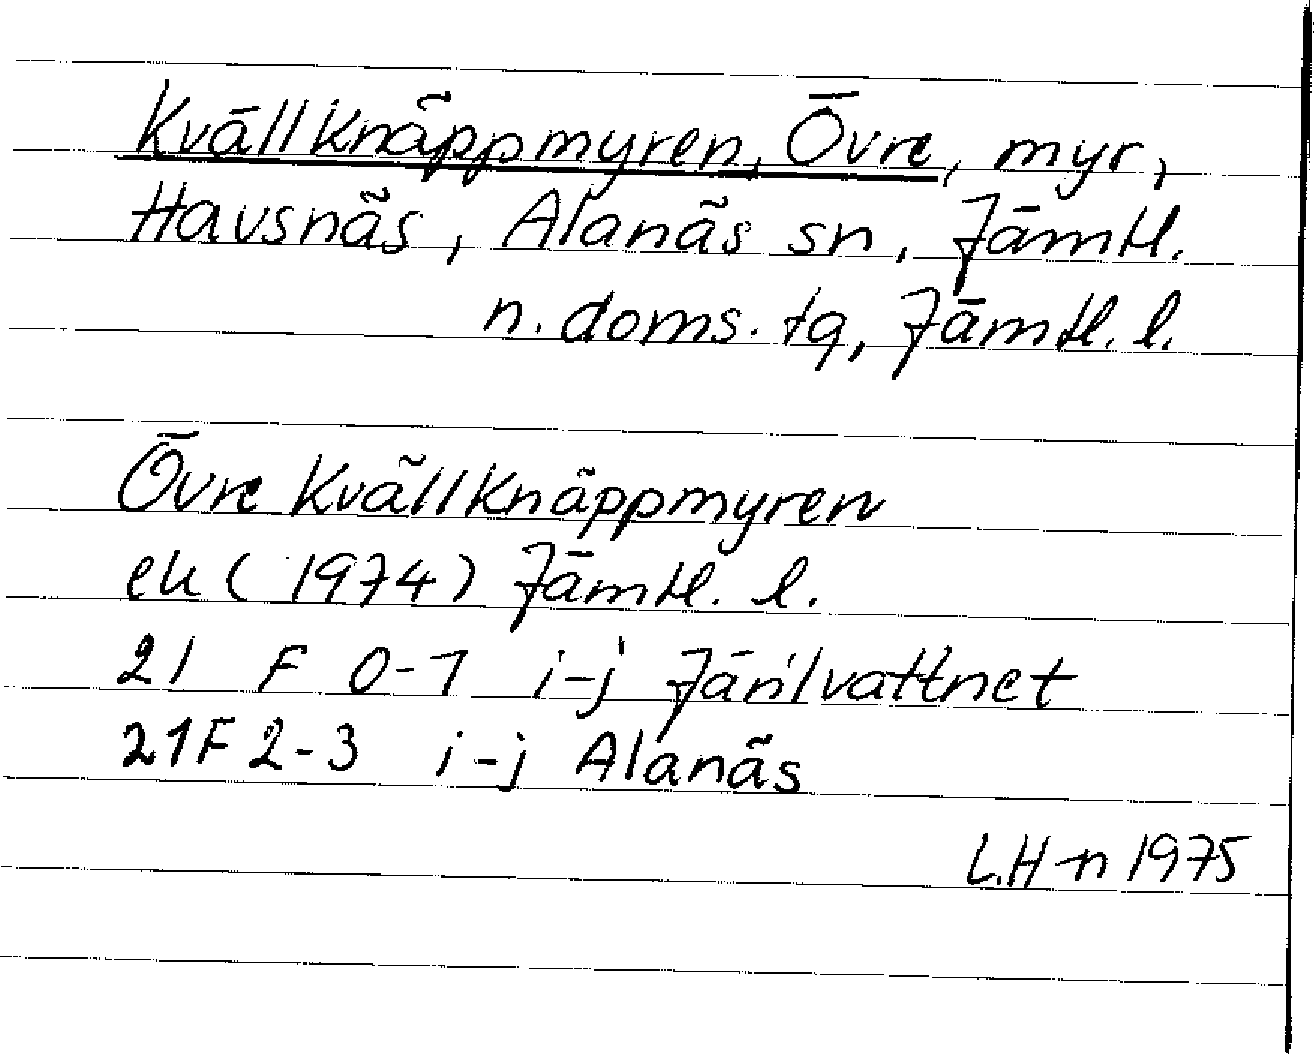 Kvällknäppmyren, Övre, myr,
Havsnäs, Alanäs sn, Jämtl.
n. doms. tg, Jämtl. l.
Övre Kvällknäppmyren
ek (1974) Jämtl. l.
21 F 0-1 i-j Järilvattnet
21F 2-3 i-j Alanäs
L.H-n 1975